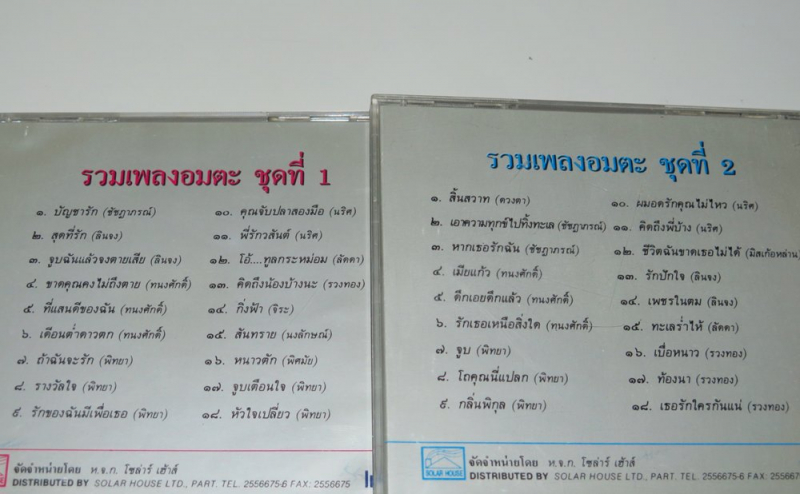 รวมเพลงอมตะ ชุดที่ 1
๑. บัญชารัก (ชัชฎาภรณ์)
๒. สุดที่รัก (ลินจง)
๓. จูบฉันแล้วจงตายเสีย (ลินจง)
๔. ขาดคุณคงไม่ถึงตาย (ทนงศักดิ์)
๕. ที่แสนดีของฉัน (ทนงศักดิ์)
๖. เดือนต่ำดาวตก (ทนงศักดิ์)
๗. ถ้าฉันจะรัก (พิทยา)
๘. รางวัลใจ (พิทยา)
๙. รักของฉันมีเพื่อเธอ (พิทยา)
๑๐. คุณจับปลาสองมือ (นริศ)
๑๑. พี่รักวสันต์ (นริศ)
๑๒. โอ้....ทูลกระหม่อม (ลัดดา)
๑๓. คิดถึงน้องบ้างนะ (รวงทอง)
๑๔. กิ่งฟ้า (จิระ)
๑๕. สันทราย (นงลักษณ์)
๑๖. หนาวตัก (พิศมัย)
๑๗. จูบเตือนใจ (พิทยา)
๑๘. หัวใจเปลี่ยว (พิทยา)
จัดจำหน่ายโดย ห.จ.ก. โซล่าร์ เฮ้าส์
DISTRIBUTED BY SOLAR HOUSE LTD., PART. TEL. 2556675-6 FAX: 2556675
รวมเพลงอมตะ ชุดที่ 2
๑. สิ้นสวาท (ดวงตา)
๒. เอาความทุกข์ไปทิ้งทะเล (ชัชฎาภรณ์)
๓. หากเธอรักฉัน (ชัชฎาภรณ์)
๔. เมียแก้ว (ทนงศักดิ์)
๕. ดึกเอยดึกแล้ว (ทนงศักดิ์)
๖. รักเธอเหนือสิ่งใด (ทนงศักดิ์)
๗. จูบ (พิทยา)
๘. โถคุณนี่แปลก (พิทยา)
๙. กลิ่นพิกุล (พิทยา)
๑๐. ผมอดรักคุณไม่ไหว (นริศ)
๑๑. คิดถึงพี่บ้าง (นริศ)
๑๒. ชีวิตฉันขาดเธอไม่ได้ (มีสเก๊อหล่าน)
๑๓. รักปักใจ (ลินจง)
๑๔. เพชรในตม (ลินจง)
๑๕. ทะเลร่ำไห้ (ลัดดา)
๑๖. เบื่อหนาว (รวงทอง)
๑๗. ท้องนา (รวงทอง)
๑๘. เธอรักใครกันแน่ (รวงทอง)
SOLAR HOUSE
จัดจำหน่ายโดย ห.จ.ก. โซล่าร์ เฮ้าส์
DISTRIBUTED BY SOLAR HOUSE LTD., PART. TEL. 2556675-6 FAX: 255667